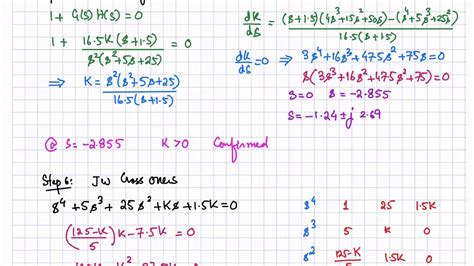 1 + G(s)H(s) = 0
1 + 16.5K(s+1.5) / s²(s²+5s+25) = 0
⇒ K = s²(s²+5s+25) / 16.5(s+1.5)
dK/ds = (s+1.5)(4s³+15s²+50s) - (s⁴+5s³+25s²) / 16.5(s+1.5)
dK/ds = 0 ⇒ 3s⁴+16s³+47.5s²+75s=0
s(3s³+16s²+47.5s+75)=0
s=0 s=-2.855
s=-1.24 ± j 2.69
@ s=-2.855 K>0 Confirmed
Step 6: Jw Cross overs
s⁴+5s³+25s²+Ks+1.5K=0
(125-K / 5)K - 7.5K = 0
s⁴ 1 25 1.5K
s³ 5 K 0
s² 125-K / 5 1.5K